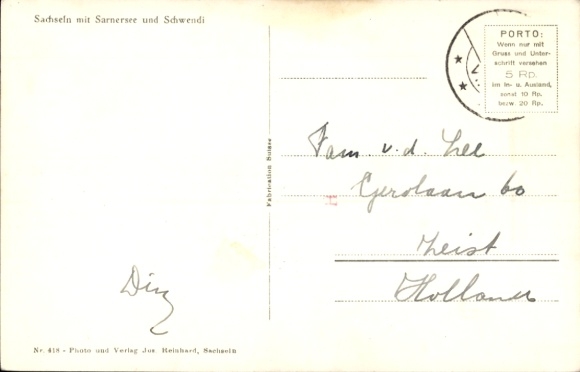 Sachseln mit Sarnersee und Schwendi
PORTO:
Wenn nur mit
Gruss und Unter-
schrift versehen
5 Rp.
im In- u. Ausland,
sonst 10 Rp.
bezw. 20 Rp.
Fabrication Suisse
Fam. v. d. Lee
60
Zeist
Holland
Nr. 418 - Photo und Verlag Jos. Reinhard, Sachseln